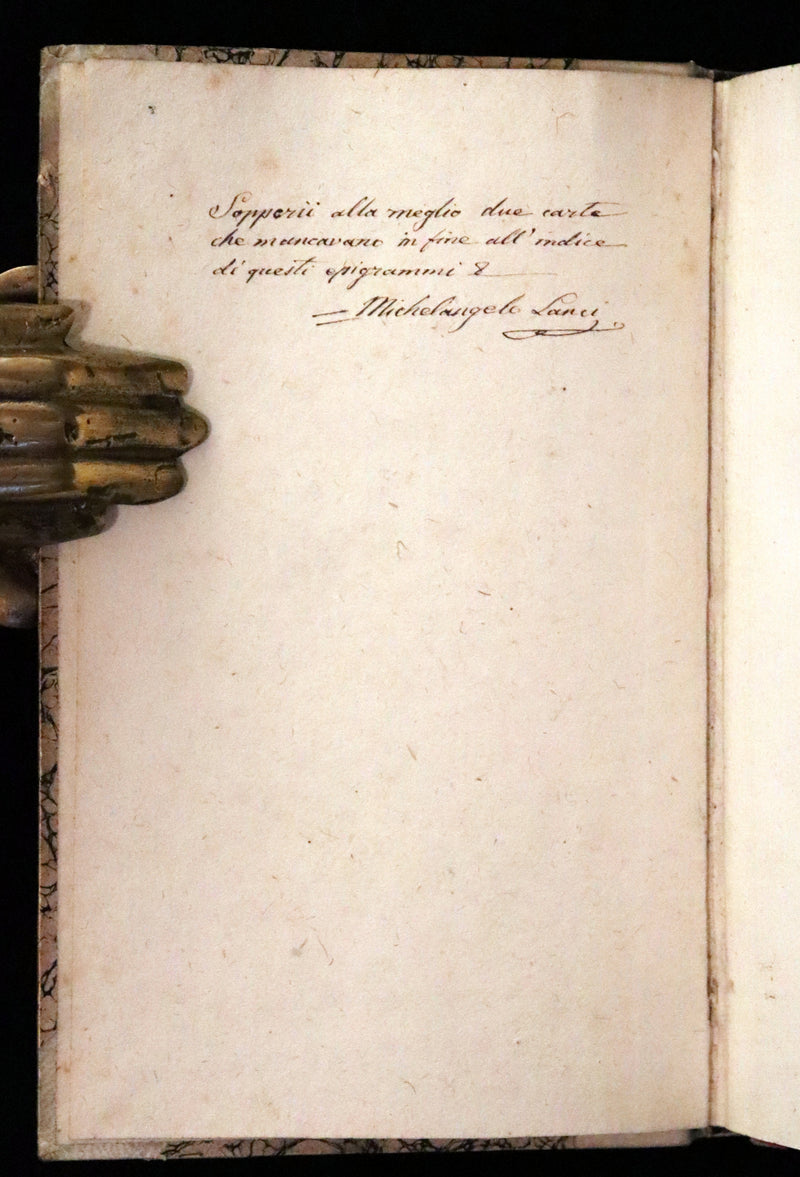 Sopperii alla meglio due carte
che mancavano in fine all' indice
di questi epigrammi &
— Michelangelo Lanci